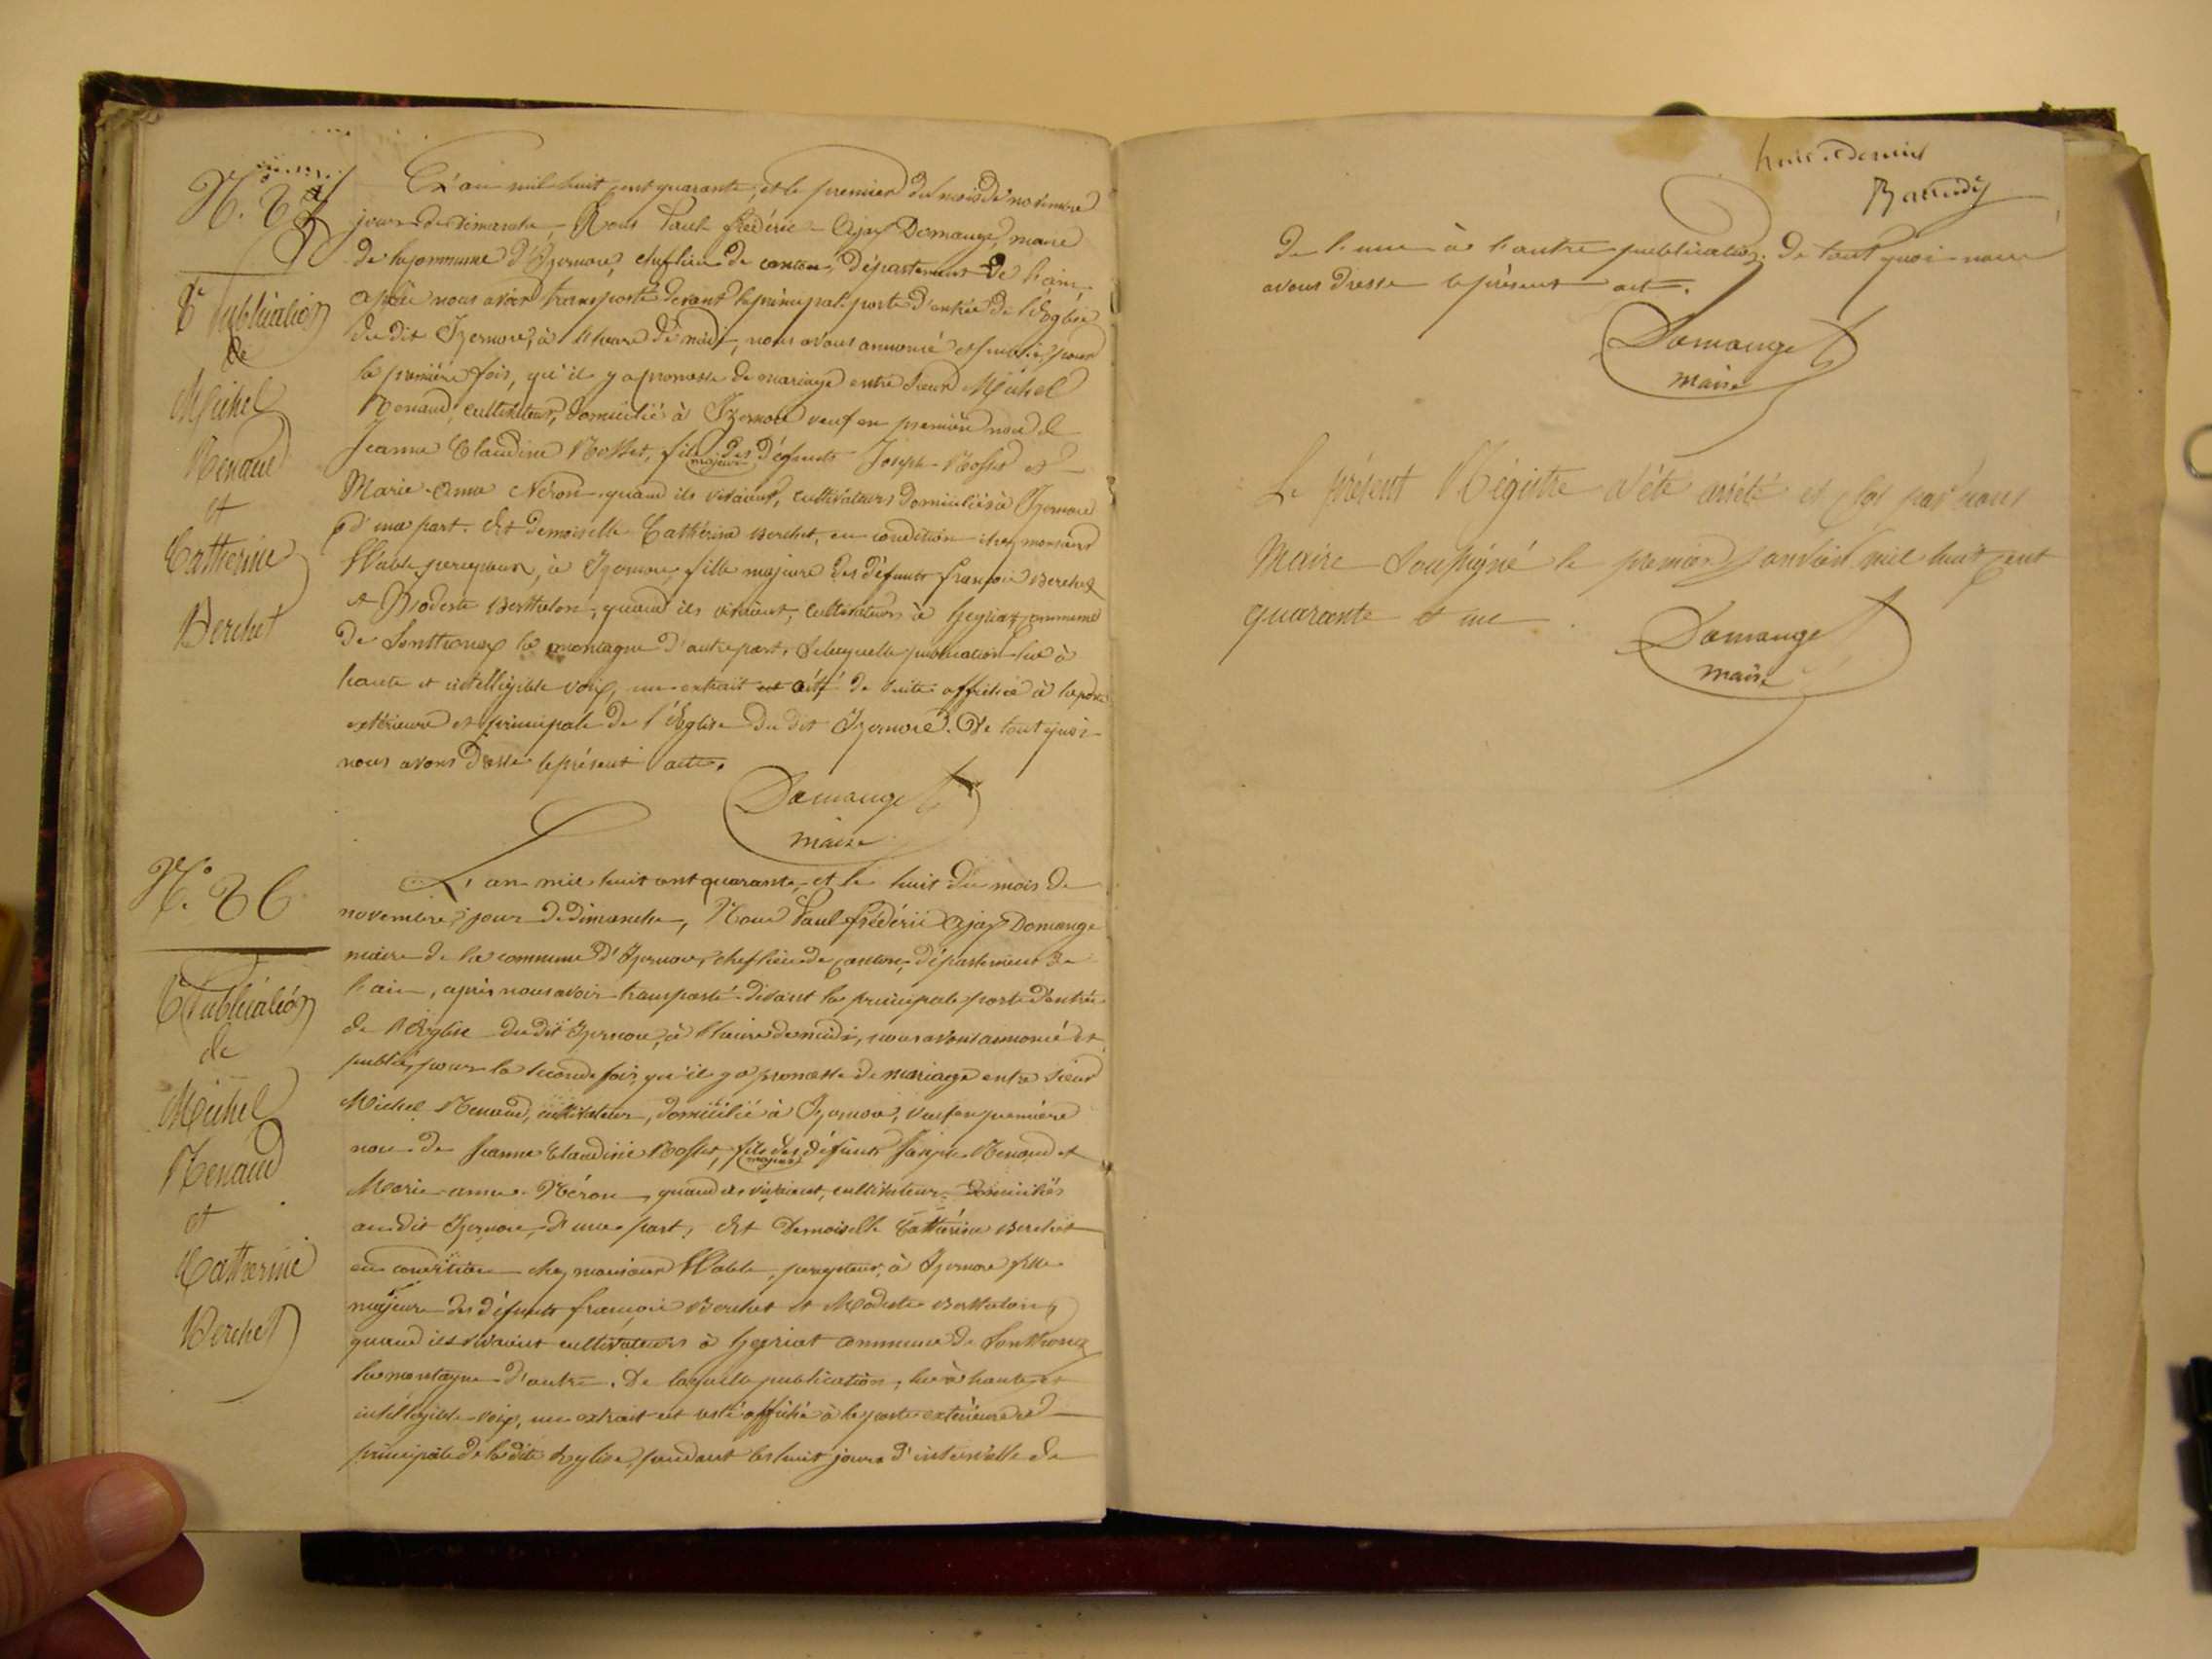 L'an mil huit cent quarante, et le premier du mois de novembre
jour de dimanche, Nous Paul frédéric Ajax Domange, maire
de la commune d'Izernore, chef lieu de canton, département de l'ain,
après nous avoir transporté devant la principale porte d'entrée de l'Eglise
du dit Izernore, à l'heure de midi, nous avons annoncé et publié, pour
la première fois, qu'il y a promesse de mariage entre sieur Michel
Renaud, cultivateur, domicilié à Izernore veuf en première noce de
Jeanne Claudine Rosset, fils majeur des défunts Joseph Rosset et
Marie-Anne Néron quand ils vivaient, cultivateurs domiciliés à Izernore
d'une part. Et demoiselle Cathérine Berchet, en condition chez monsieur
percepteur, à Izernore, fille majeure des défunts françois Berchet
et Modeste Berthelon, quand ils vivaient, cultivateurs à heyriat commune
de Sonthonax la montagne d'autre part. De laquelle publication lue à
haute et intelligible voix, un extrait est de suite affiché à la porte
extérieure et principale de l'Eglise du dit Izernore. De tout quoi
nous avons dressé le présent acte.
Domange
maire
Publication
de
Michel
Renaud
et
Catherine
Berchet
N.° 26
L'an mil huit cent quarante, et le huit du mois de
novembre, jour de dimanche, Nous Paul frédéric Ajax Domange
maire de la commune d'Izernore, chef lieu de canton, département de
l'ain, après nous avoir transporté devant la principale porte d'entrée
de l'Eglise du dit Izernore, à l'heure de midi, nous avons annoncé et
publié, pour la seconde fois, qu'il y a promesse de mariage entre sieur
Michel Renaud, cultivateur, domicilié à Izernore, veuf en première
noce de Jeanne Claudine Rosset, fils majeur des défunts Joseph Renaud et
Marie-anne Néron, quand ils vivaient, cultivateurs domiciliés
au dit Izernore, d'une part, Et Demoiselle Cathérine Berchet
en condition chez monsieur percepteur, à Izernore fille
majeure des défunts françois Berchet et Modeste Berthelon,
quand ils vivaient cultivateurs à heyriat commune de Sonthonax
la montagne d'autre. De laquelle publication, lue à haute et
intelligible voix, un extrait est resté affiché à la porte extérieure et
principale de la dite Eglise, pendant les huit jours d'intervalle de
Publication
de
Michel
Renaud
et
Catherine
Berchet
de l'une à l'autre publication. De tout quoi nous
avons dressé le présent acte.
Domange
maire
Le présent Régistre a été arrêté et clos par nous
Maire Soussigné le premier janvier mil huit cent
quarante et un.
Domange
maire